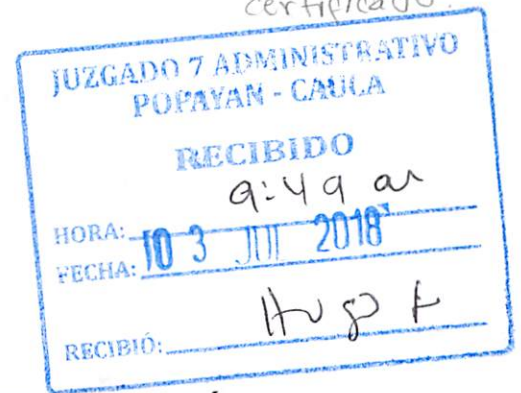 certificado.
JUZGADO 7 ADMINISTRATIVO
POPAYAN - CAUCA
RECIBIDO
9:49 am
HORA:
FECHA: 03 JUL 2018
Hugo
RECIBIÓ: